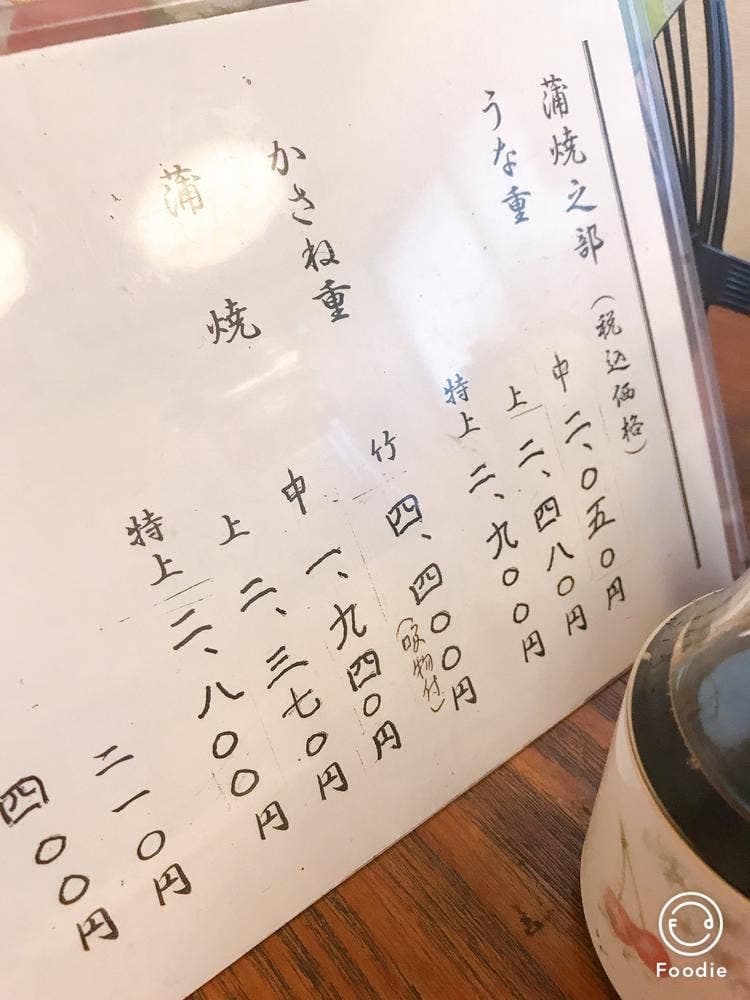 蒲焼之部（税込価格）
うな重
中 二、〇五〇円
上 二、四八〇円
特上 二、九〇〇円
かさね重
竹 四、四〇〇円
（吸物付）
蒲焼
中 一、九四〇円
上 二、三七〇円
特上 二、八〇〇円
二一〇円
四〇〇円
Foodie